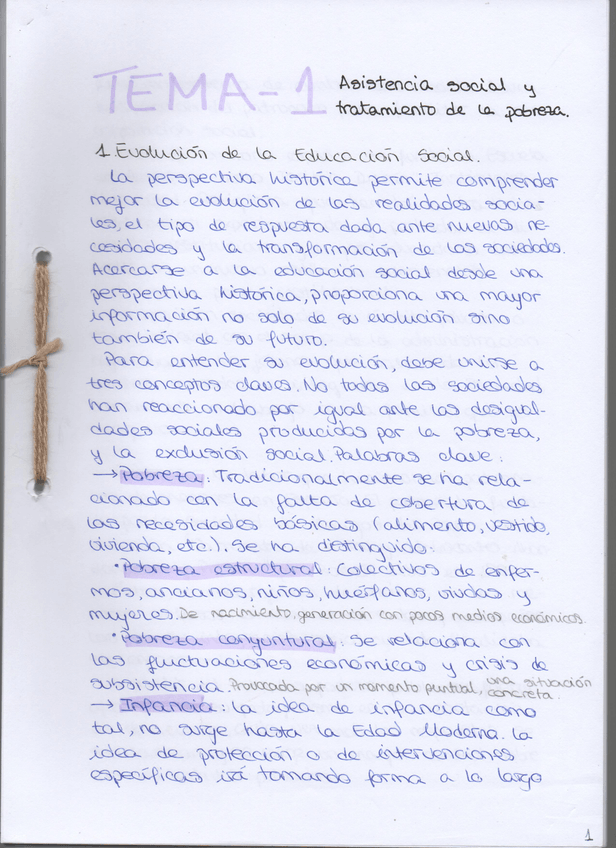 TEMA-1 Asistencia social y
tratamiento de la pobreza.
1. Evolución de la Educación Social.
La perspectiva histórica permite comprender
mejor la evolución de las realidades socia-
les, el tipo de respuesta dada ante nuevas ne-
cesidades y la transformación de las sociedades.
Acercarse a la educación social desde una
perspectiva histórica, proporciona una mayor
información no solo de su evolución sino
también de su futuro.
Para entender su evolución, debe unirse a
tres conceptos claves. No todas las sociedades
han reaccionado por igual ante las desigual-
dades sociales producidas por la pobreza,
y la exclusión social. Palabras clave:
→ Pobreza: Tradicionalmente se ha rela-
cionado con la falta de cobertura de
las necesidades básicas (alimento, vestido,
vivienda, etc.). Se ha distinguido:
· Pobreza estructural: Colectivos de enfer-
mos, ancianos, niños, huérfanos, viudas y
mujeres. De nacimiento, generación con pocos medios económicos.
· Pobreza conyuntural: Se relaciona con
las fluctuaciones económicas y crisis de
subsistencia. Provocada por un momento puntual, una situación
concreta.
→ Infancia: La idea de infancia como
tal, no surge hasta la Edad Moderna. La
idea de protección o de intervenciones
específicas irá tomando forma a lo largo
1